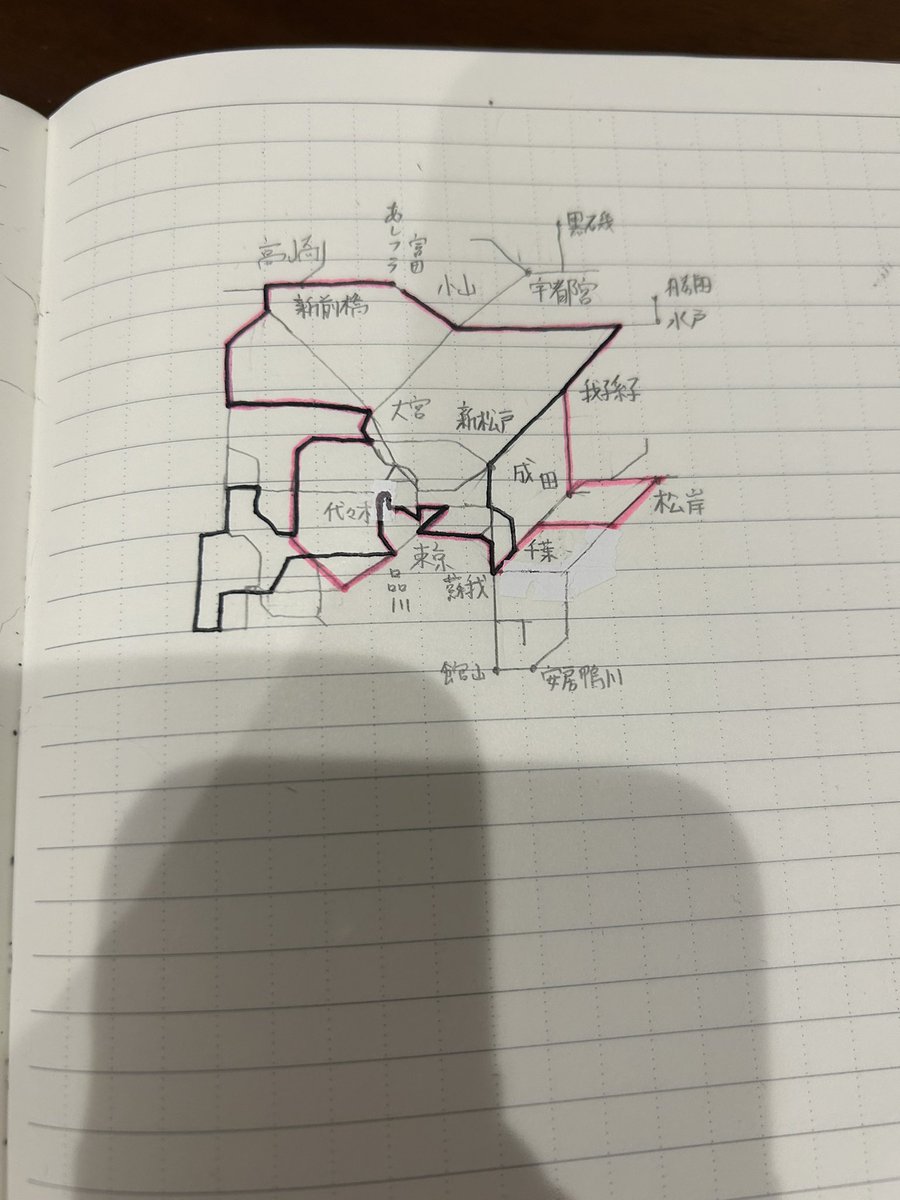 黒磯
あしフラ
富田
高崎
小山
宇都宮
新前橋
勝田
水戸
我孫子
大宮
新松戸
成田
松岸
代々木
東京
千葉
品川
蘇我
館山
安房鴨川